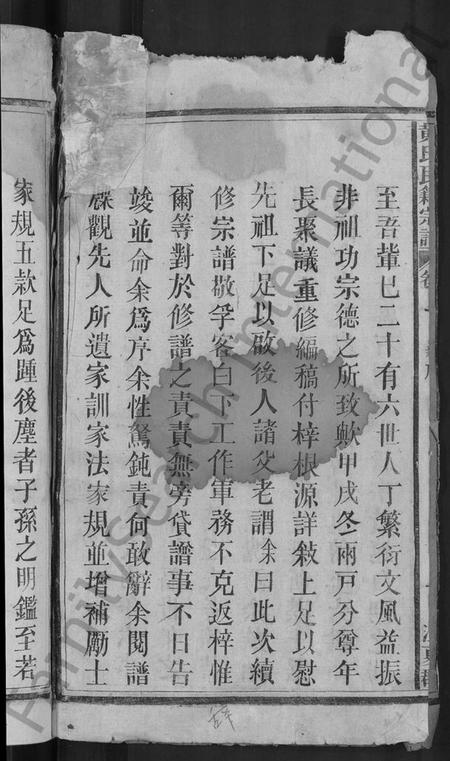 黃氏民籍宗譜 卷一 序
至吾輩已二十有六世人丁繁衍文風益振
非祖功宗德之所致歟甲戌冬兩戸分尊年
長聚議重修編稿付梓根源詳敍上足以慰
先祖下足以啟後人諸父老謂余曰此次續
修宗譜敬孚客白下工作軍務不克返梓惟
爾等對於修譜之責責無旁貸譜事不日告
竣並命余爲序余性駑鈍責何敢辭余閱譜
牒觀先人所遺家訓家法家規並增補勵士
家規五款足爲踵後塵者子孫之明鑑至若
FamilySearch International